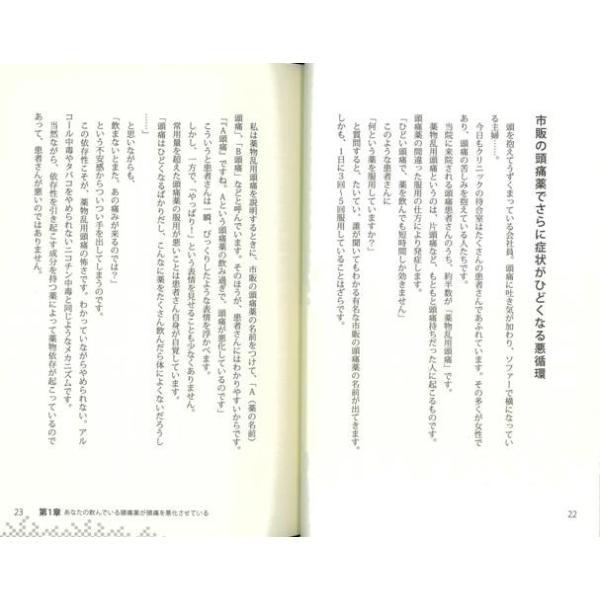 市販の頭痛薬でさらに症状がひどくなる悪循環
頭を抱えてうずくまっている会社員。頭痛に吐き気が加わり、ソファーで横になってい
る主婦……。
今日もクリニックの待合室はたくさんの患者さんであふれています。その多くが女性で
あり、頭痛の苦しみを抱えている人たちです。
当院に来院される頭痛患者さんのうち、約半数が「薬物乱用頭痛」です。
薬物乱用頭痛というのは、片頭痛など、もともと頭痛持ちだった人に起こるもので、
頭痛薬の間違った服用の仕方により発症します。
「ひどい頭痛で、薬を飲んでも短時間しか効きません」
このような患者さんに
「何という薬を服用していますか？」
と質問すると、たいてい、誰が聞いてもわかる有名な市販の頭痛薬の名前が出てきます。
しかも、1日に3回～5回服用していることはざらです。
22
私は薬物乱用頭痛を説明するときに、市販の頭痛薬の名前をつけて、「A（薬の名前）
頭痛」、「B頭痛」などと呼んでいます。そのほうが、患者さんにはわかりやすいからです。
「『A頭痛』ですね。Aという頭痛薬の飲み過ぎで、頭痛が悪化しているのです」
こういうと患者さんは一瞬、びっくりしたような表情を浮かべます。
しかし、一方で、「やっぱり！」という表情を見せることも少なくありません。
常用量を超えた頭痛薬の服用が悪いことは患者さん自身が自覚しています。
「頭痛はひどくなるばかりだし、こんなに薬をたくさん飲んだら体によくないだろうし
……」
と思いながらも、
「飲まないとまた、あの痛みが来るのでは？」
という不安感からついつい手を出してしまうのです。
この依存性こそが、薬物乱用頭痛の怖さです。わかっていながらやめられない。アル
コール中毒やタバコをやめられないニコチン中毒と同じようなメカニズムです。
当然ながら、依存性を引き起こす成分を持つ薬によって薬物依存が起こっているので
あって、患者さんが悪いのではありません。
23 第1章 あなたの飲んでいる頭痛薬が頭痛を悪化させている